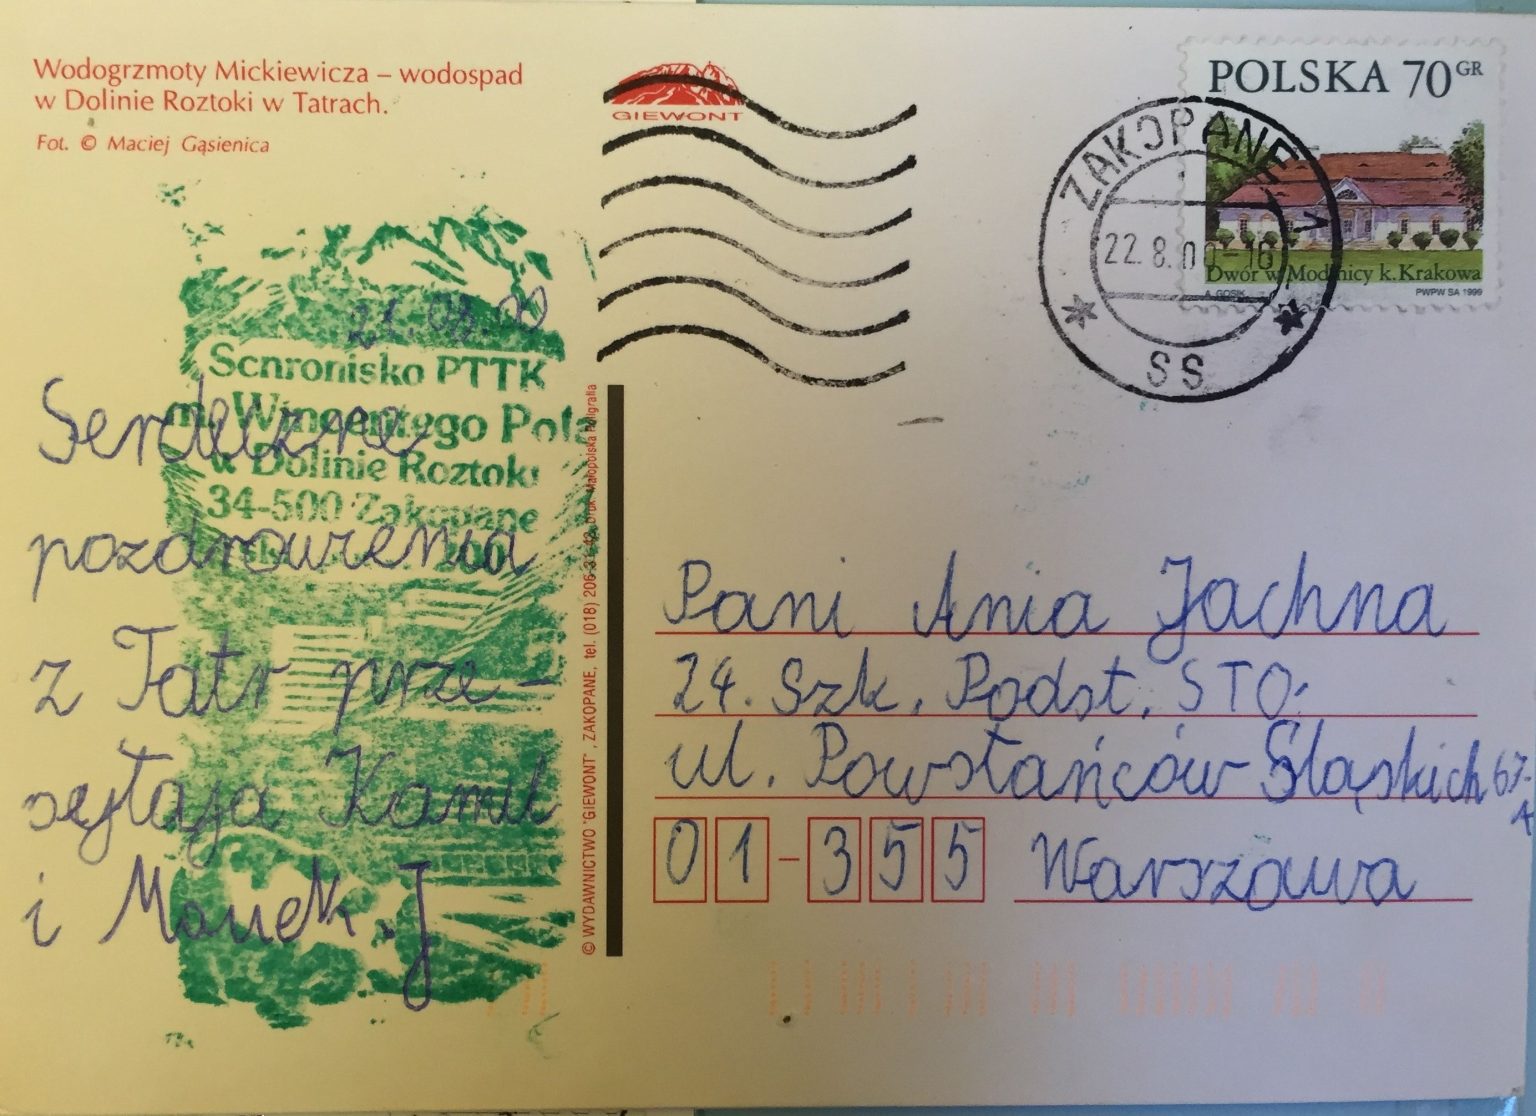 Wodogrzmoty Mickiewicza – wodospad
w Dolinie Roztoki w Tatrach.
Fot. © Maciej Gąsienica
GIEWONT
POLSKA 70 GR
Dwór w Modlnicy k. Krakowa
PWPW SA 1999
ZAKOPANE 1
22.8.00-16
SS
21.08.00
Schronisko PTTK
im. Wincentego Pola
w Dolinie Roztoki
34-500 Zakopane
Serdeczne
pozdrowienia
z Tatr prze-
syłają Kamil
i Marek.J
© WYDAWNICTWO "GIEWONT", ZAKOPANE, tel. (018) 206 31 42, Druk. Małopolska Poligrafia
Pani Ania Jachna
24. Szk. Podst. STO.
ul. Powstańców Śląskich 67-
A
01-355 Warszawa